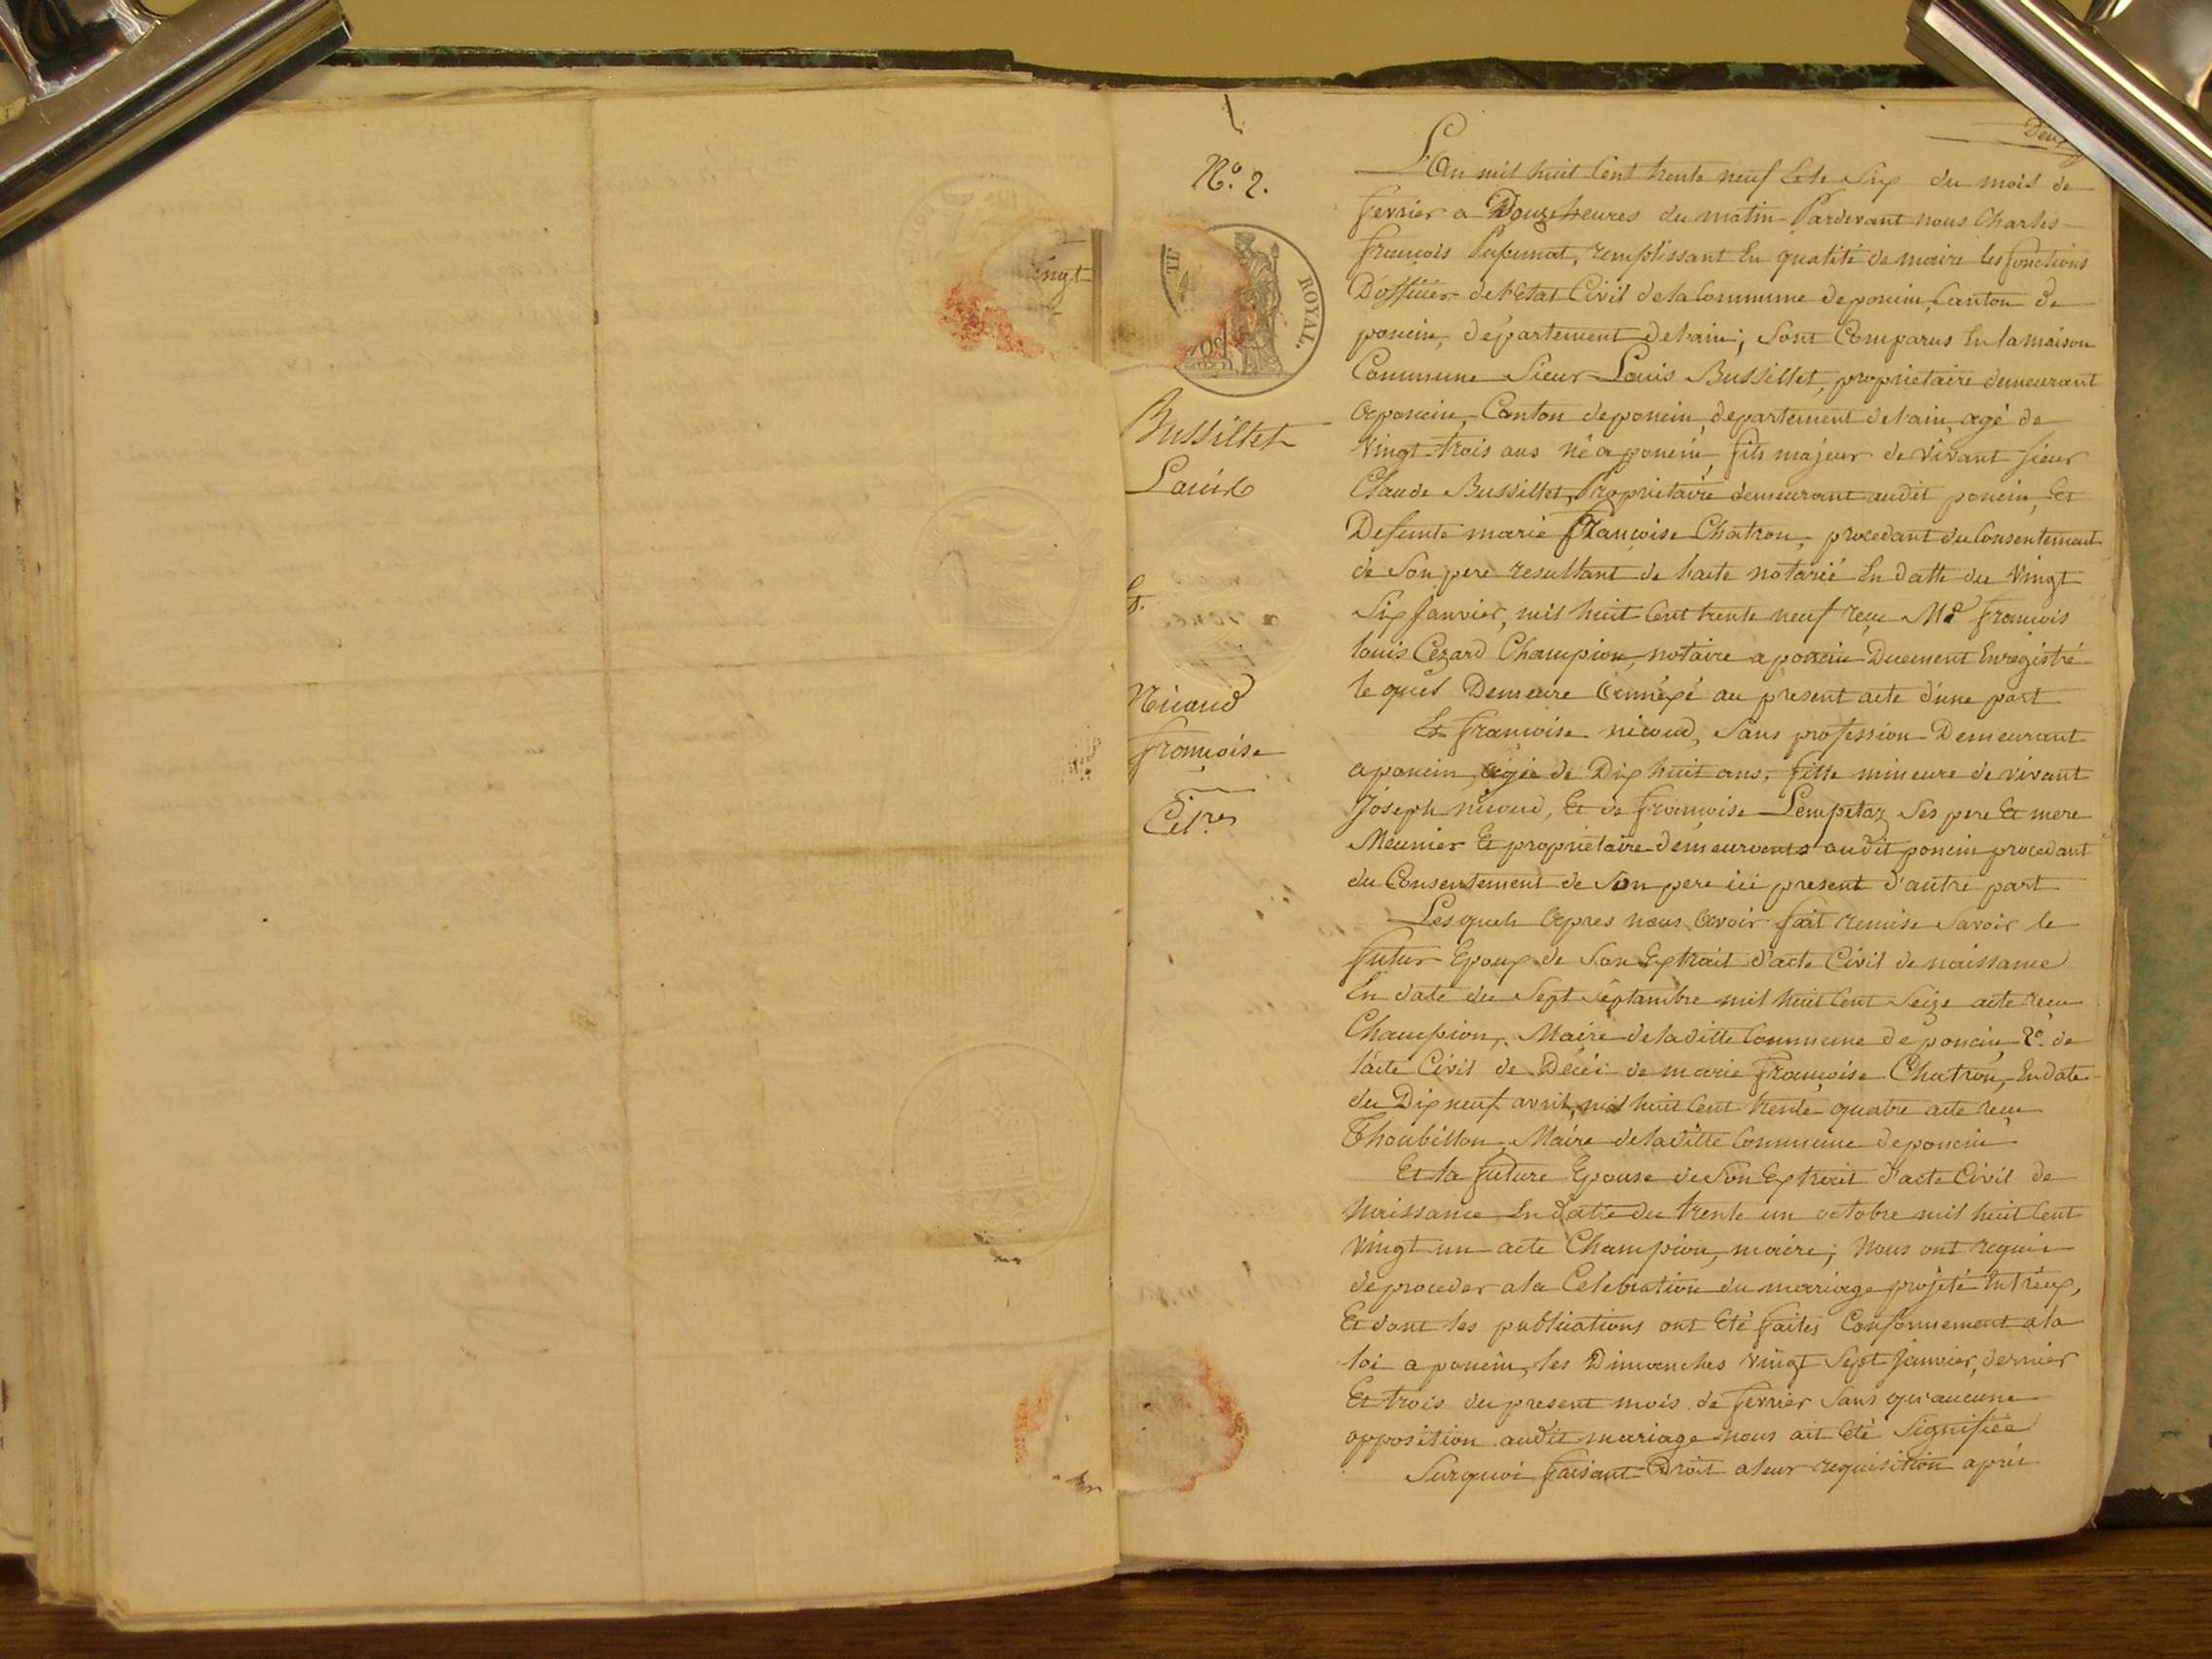 Deux
L'An mil huit Cent trente neuf Et le Six du mois de
fevrier a Douze heures du matin Pardevant nous Charles
françois remplissant En qualité de maire les fonctions
D'officier de l'Etat Civil de la Commune de poncin, Canton de
poncin, département de l'ain; Sont Comparus En la maison
Commune Sieur Louis Bussillet, proprietaire demeurant
a poncin, Canton de poncin, departement de l'ain, agé de
Vingt-trois ans né a poncin, fils majeur de vivant Sieur
Claude Bussillet, Proprietaire demeurant audit poncin, Et
Defunte marie françoise Chatron, procedant du Consentement
de Son pere resultant de l'acte notarié En datte du Vingt
Six Janvier, mil huit Cent trente neuf reçu Me françois
louis Cezard Champion, notaire a poncin Duement Enregistré
le quel Demeure Annéxé au present acte d'une part
Et françoise nicoud, Sans profession Demeurant
a poncin, agée de Dix huit ans, fille mineure de vivant
Joseph nicoud, Et de françoise Lempetaz Ses pere Et mere
Meunier Et proprietaire demeurants audit poncin procedant
du Consentement de Son pere ici present d'autre part
Lesquels Apres nous Avoir fait remise Savoir le
futur Epoux de Son Extrait d'acte Civil de naissance
En date du Sept Septambre mil huit Cent Seize acte reçu
Champion, Maire de la ditte Commune de poncin, 2º. de
l'acte Civil de Décéi de marie françoise Chatron, En date
du Dix neuf avril, mil huit Cent trente quatre acte reçu
Thoubillon, Maire de la ditte Commune de poncin
Et la future Epouse de Son Extrait d'acte Civil de
Naissance En datte du trente un octobre mil huit Cent
Vingt un acte Champion, maire; Nous ont requis
de proceder a la Célébration du mariage projeté Entréux,
Et dont les publications ont Eté faites Conformement a la
loi a poncin, les Dimanches vingt Sept Janvier, dernier
Et trois du present mois de fevrier Sans qu'aucune
opposition audit mariage nous ait Eté Signifiée
Surquoi faisant Droit a leur requisition aprés
Nº. 2.
ROYAL.
Bussillet
Louis
Et
Nicoud
françoise
vingt